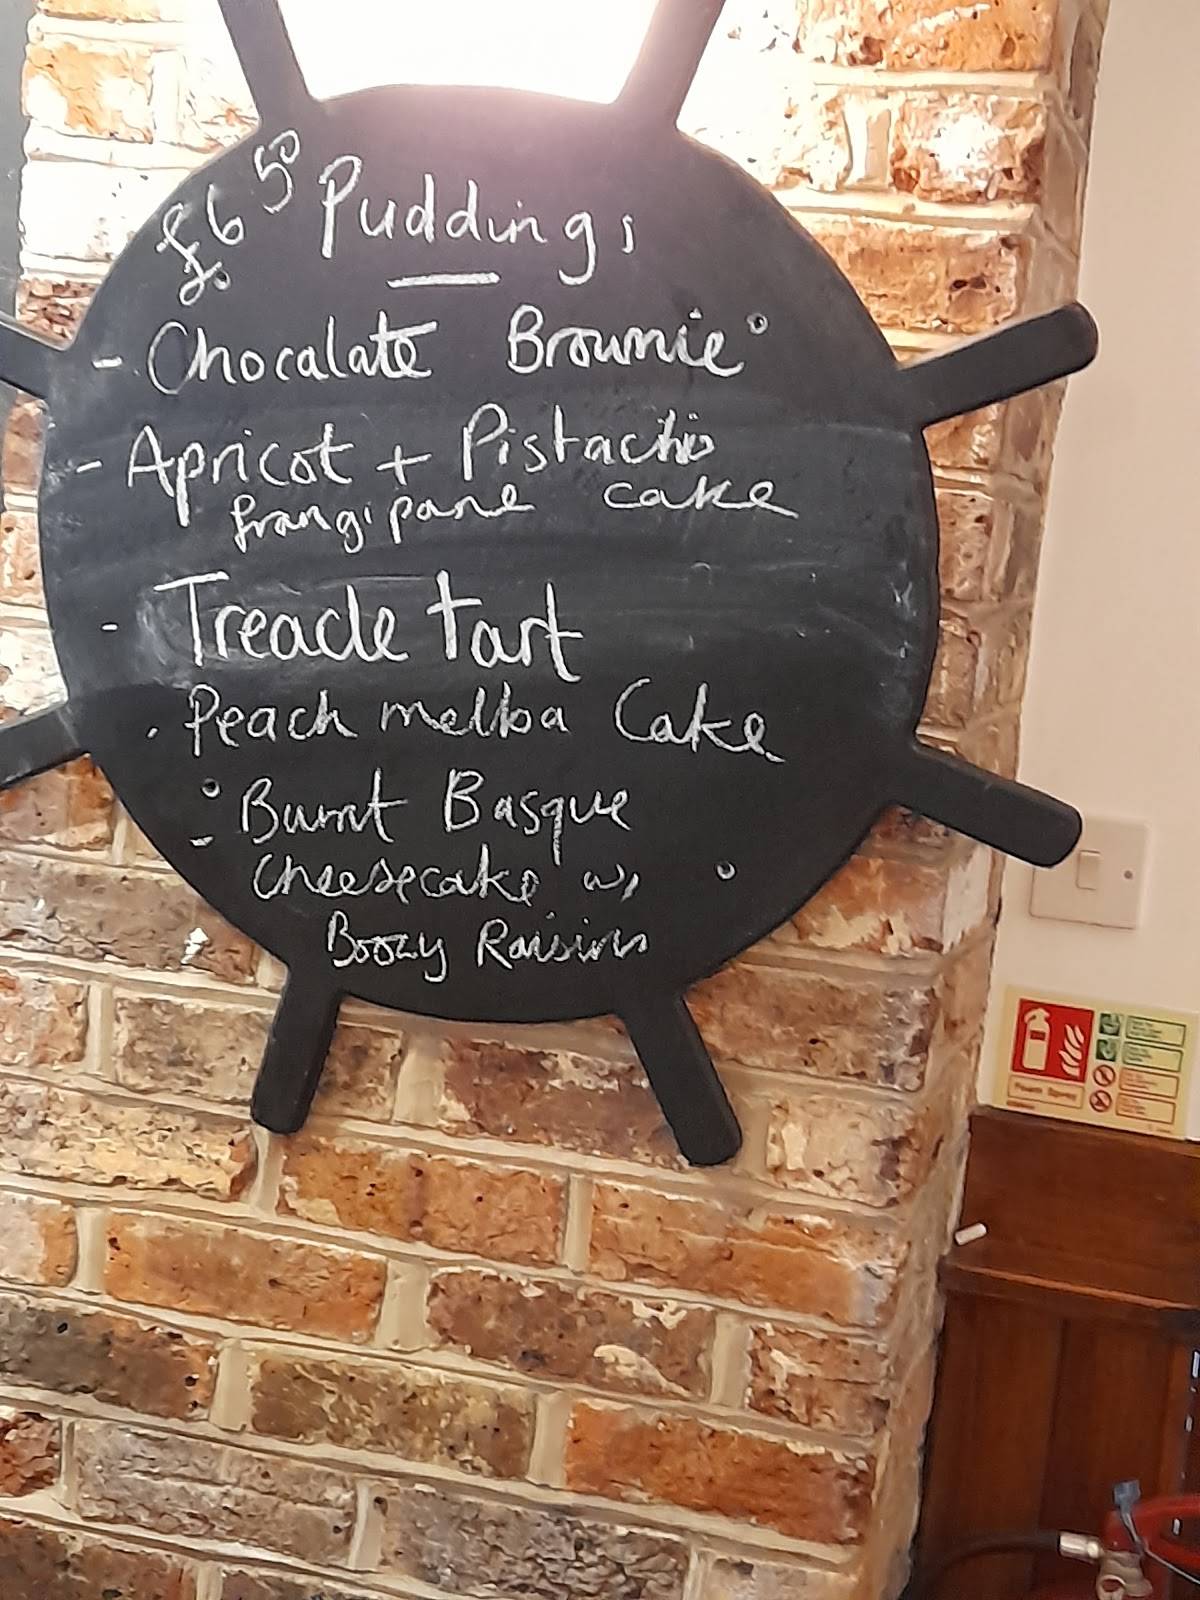 £6.50 Puddings
- Chocalate Brownie
- Apricot + Pistachio
frangipane cake
- Treacle tart
. Peach melba Cake
- Burnt Basque
Cheesecake w/
Boozy Raisins
Foam Spray